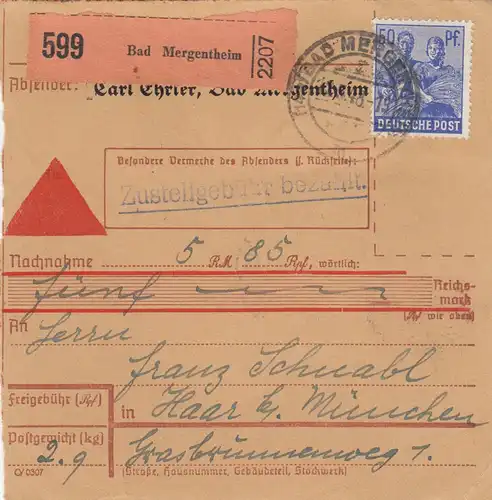 599 Bad Mergentheim 2207
50 Pf.
DEUTSCHE POST
BAD MERGENTHEIM
Absender: Karl Ehrler, Bad Mergentheim
Besondere Vermerke des Absenders (s. Rückseite):
Zustellgebühr bezahlt.
Nachnahme 5 RM 85 Rpf, wörtlich:
fünf — — —
Reichs-
mark
(Rpf wie oben)
An
Herrn
Franz Schnabl
in Haar b. München
Grasbrunnerweg 1.
(Straße, Hausnummer, Gebäudeteil, Stockwerk)
Freigebühr (Rpf)
Postgewicht (kg)
2.9
C/0307